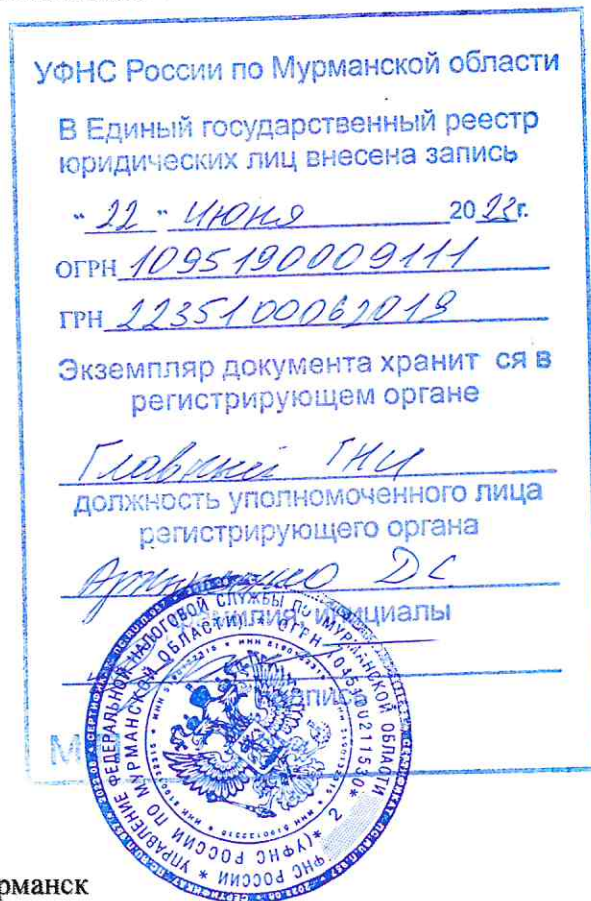 УФНС России по Мурманской области
В Единый государственный реестр
юридических лиц внесена запись
"22" июня 2023г.
ОГРН 1095190009111
ГРН 2235100062019
Экземпляр документа хранит ся в
регистрирующем органе
Главный ГНИ
должность уполномоченного лица
регистрирующего органа
ДС
фамилия, инициалы
подпись
М
УПРАВЛЕНИЕ ФЕДЕРАЛЬНОЙ НАЛОГОВОЙ СЛУЖБЫ ПО МУРМАНСКОЙ ОБЛАСТИ
(УФНС РОССИИ ПО МУРМАНСКОЙ ОБЛАСТИ) * ОГРН 1045100211530 *
ФНС РОССИИ *
* ИНН 5190132315 *
2
рманск